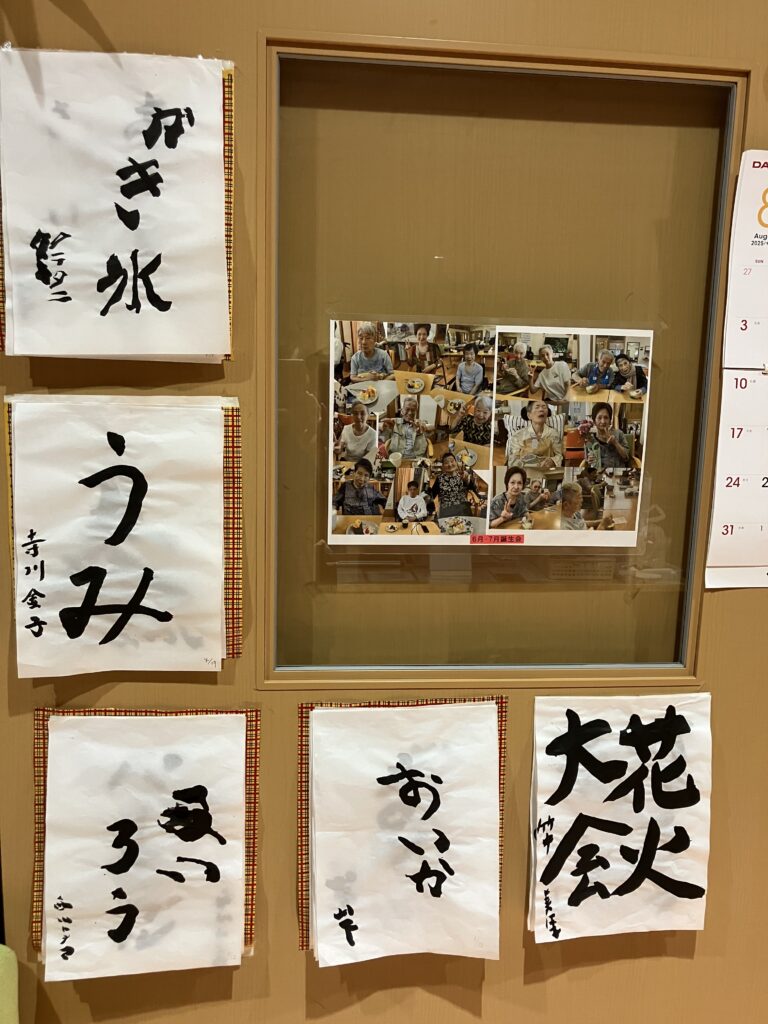 かき氷
うみ
寺川金子
ろう
おいか
岸
花火
大会
竹中
6月・7月誕生会
DA
8
Aug
2025
SUN
27
3
10
17
24
31